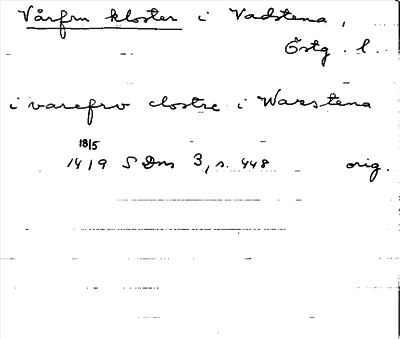 Vårfru kloster i Vadstena,
Östg. l.
i varefrv clostre i Warstena
18/5
1419 S Dns 3, s. 448 orig.